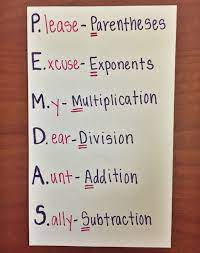 P.lease-Parentheses
E.xcuse-Exponents
M.y-Multiplication
D.ear-Division
A.unt-Addition
S.ally-Subtraction